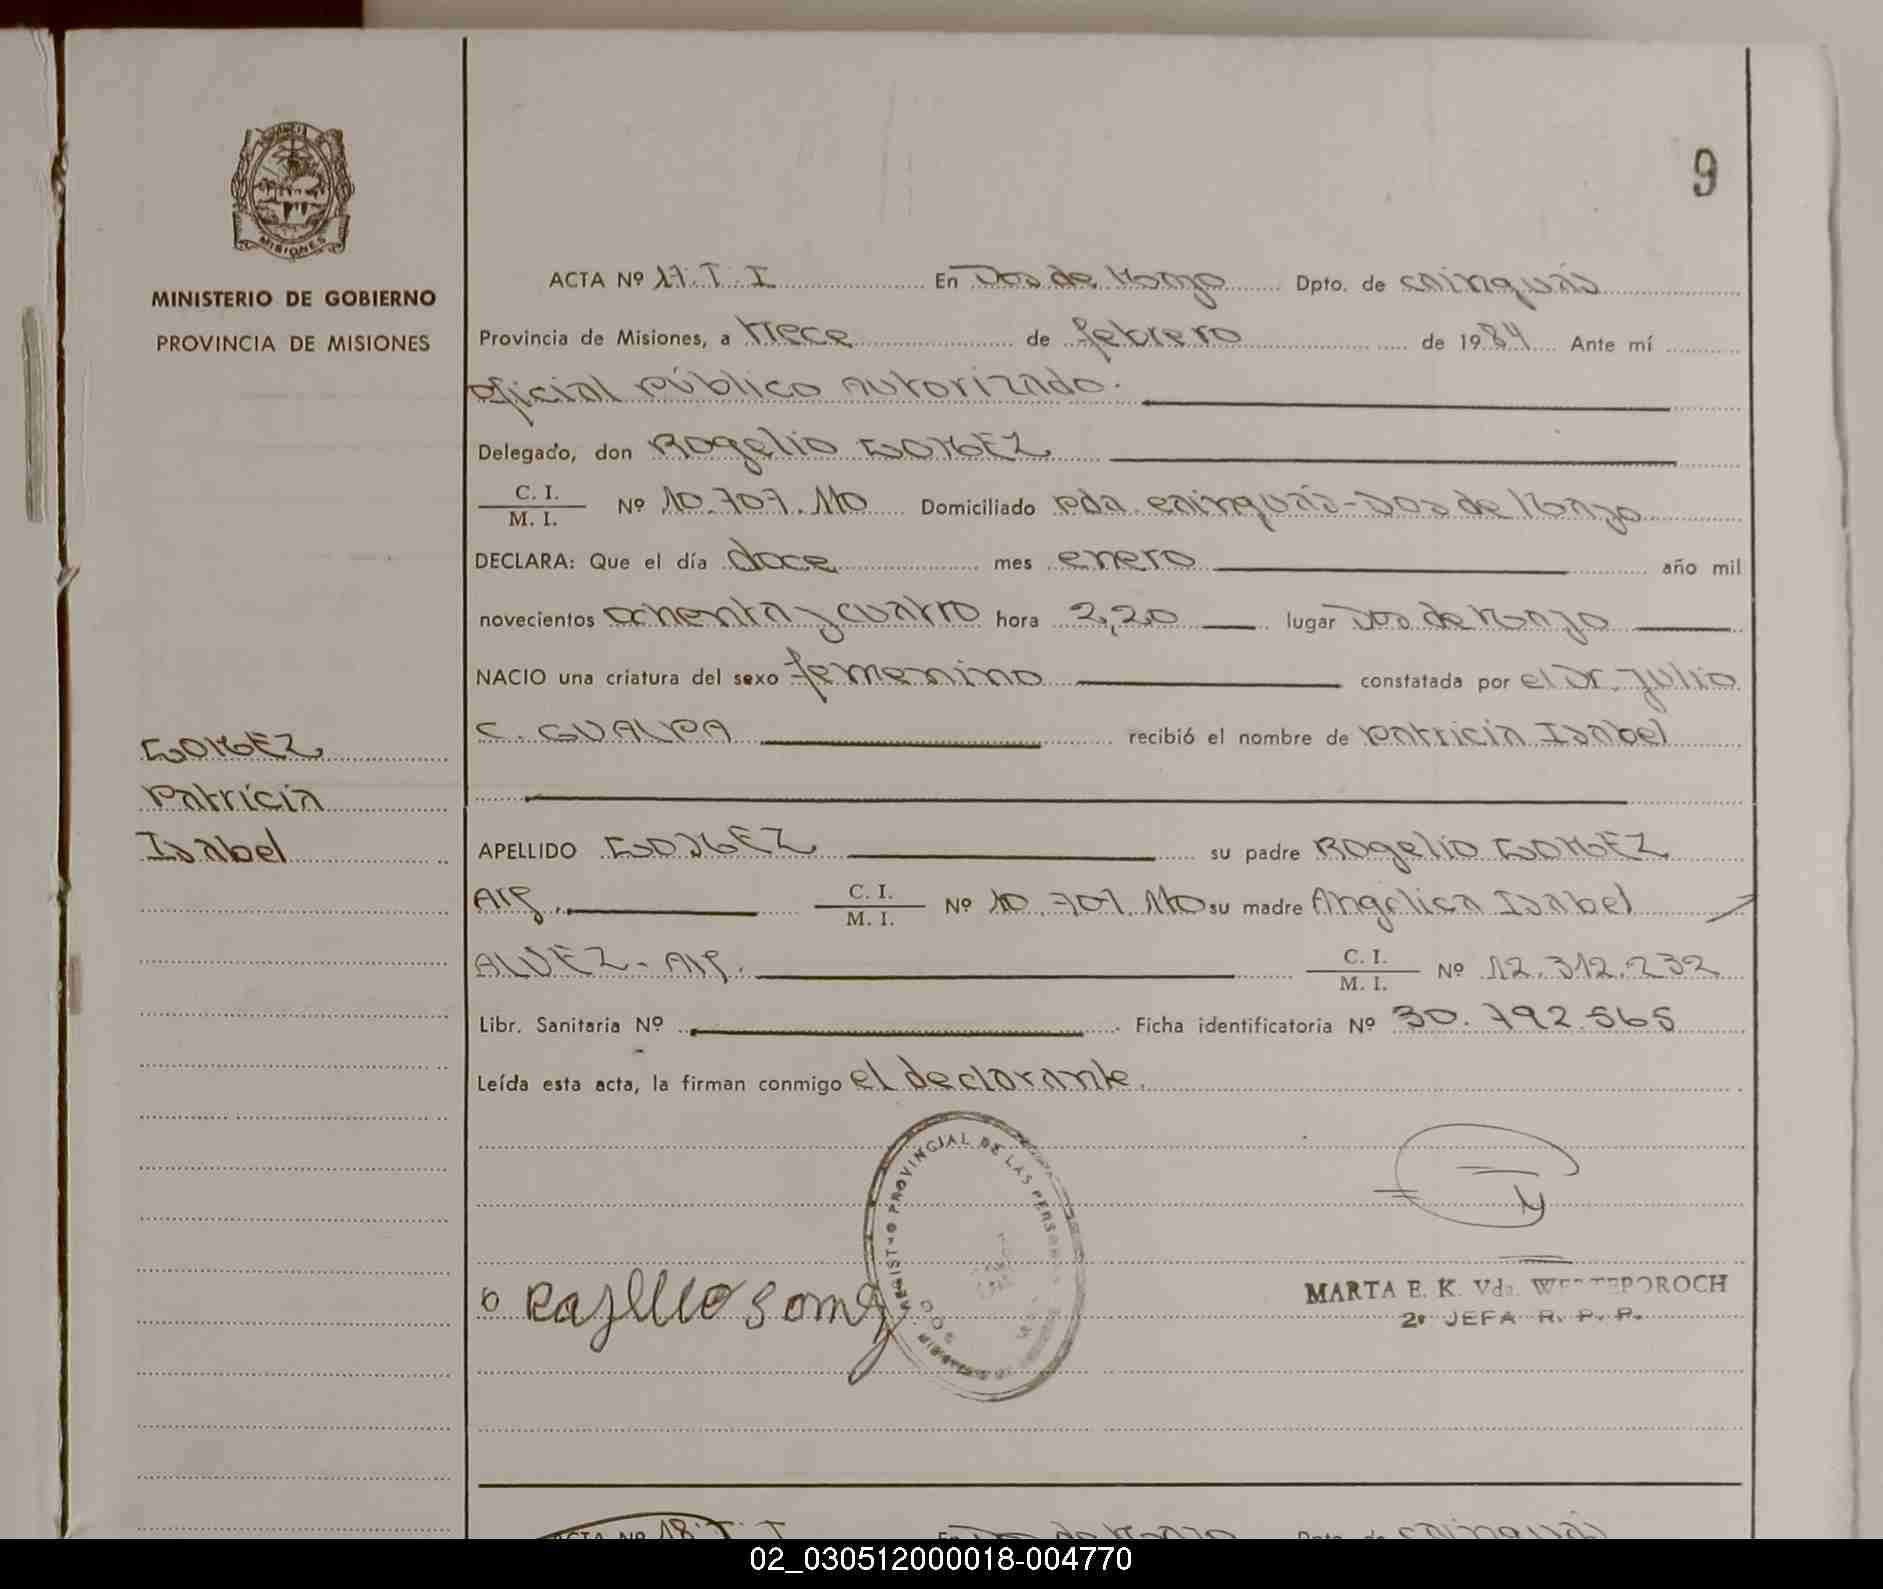 9
MISIONES
MINISTERIO DE GOBIERNO
PROVINCIA DE MISIONES
GOMEZ
Patricia
Isabel
ACTA Nº 17.T.I En Dos de Mayo Dpto. de Cainguás
Provincia de Misiones, a trece de febrero de 1984 Ante mí
oficial público autorizado.
Delegado, don Rogelio GOMEZ
C. I.
M. I. Nº 10.707.110 Domiciliado Pda. Cainguás-Dos de Mayo
DECLARA: Que el día doce mes enero año mil
novecientos ochenta y cuatro hora 2,20 lugar Dos de Mayo
NACIO una criatura del sexo femenino constatada por el Dr. Julio
C. GUALPA recibió el nombre de Patricia Isabel
APELLIDO GOMEZ su padre Rogelio GOMEZ
Arg. C. I.
M. I. Nº 10.707.110 su madre Angélica Isabel
ALVEZ - Arg. C. I.
M. I. Nº 12.312.232
Libr. Sanitaria Nº Ficha identificatoria Nº 30.792.565
Leída esta acta, la firman conmigo el declarante.
PROVINCIAL DE LAS PERSONAS
MARTA E. K. Vda. WESTEPOROCH
2º JEFA R. P. P.
ACTA Nº 18.T.I En Dos de Mayo Dpto. de Cainguás
02_030512000018-004770